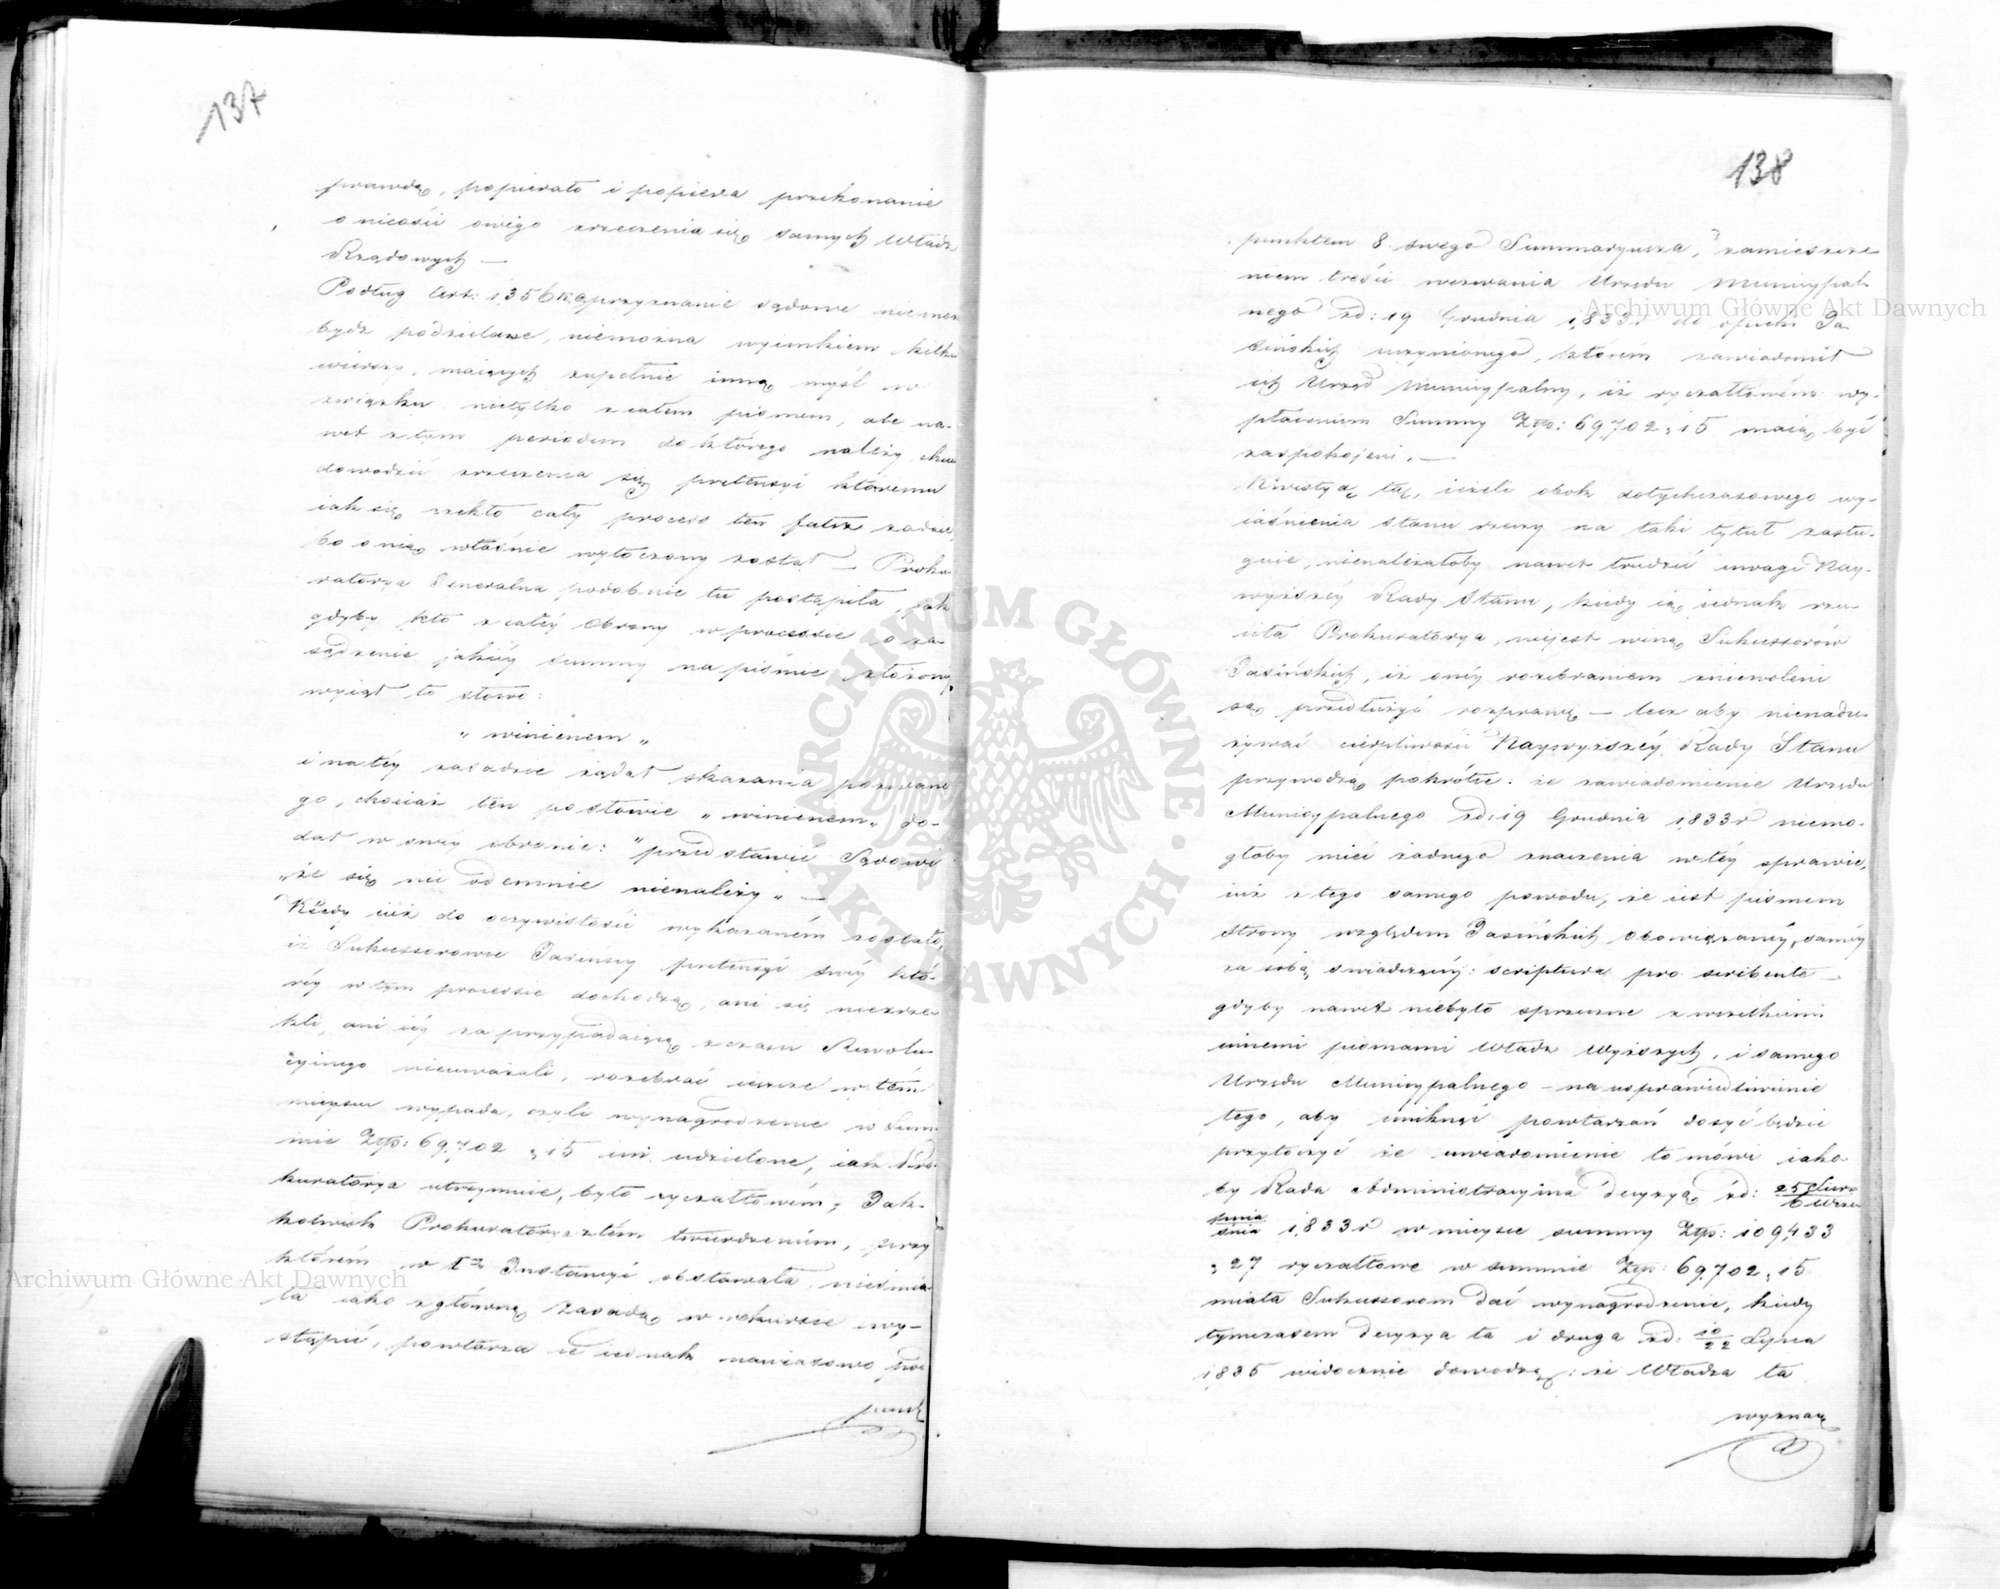 137
prawdę, popierało i popiera przekonanie
o nicości owego zrzeczenia się samych Władz
Rządowych —
Podług Art: 1,356 K.C. przyznanie sądowe niemoże
bydź podzielane, niemożna wyimkiem kilku
wierszy, maiących zupełnie inną myśl w
związku nietylko z całem pismem, ale na-
wet z tym periodem do którego należy chcieć
dowodzić zrzeczenia się pretensyi któremu
iak się rzekło cały process ten fałsz zadaie,
bo o nią właśnie wytoczony został — Proku-
ratorya Generalna podobnie tu postąpiła, jak
gdyby kto z całéy obrony w processie o za-
sądzenie jakiéy summy na piśmie złożonéy
wyiął to słowo:
„ winienem „
i na téy zasadzie żądał skazania pozwane-
go, chociaż ten po słowie „ winienem „ do-
dał w swéy obronie: „ przedstawić Sądowi
„ że się nic odemnie nienależy „ —
Kiedy iuż do oczywistości wykazaném zostało,
iż Sukcessorowie Jasińscy pretensyi swéy któ-
réy w tym processie dochodzą, ani się niezrze-
kli, ani iéy za przypadaiącą z czasu Rewolu-
cyinego nieuważali, rozebrać ieszcze w tém
mieyscu wypada, czyli wynagrodzenie w Sum-
mie Złp: 69,702 „ 15 im udzielone, iak Pro-
kuratorya utrzymuie, było ryczałtowém; Jak-
kolwiek Prokuratorya z tém twierdzeniem, przy
którém w I<sup>éy</sup> Instancyi obstawała nieśmia-
ła iako z główną zasadą w rekursie wy-
stąpić, powtarza ie iednak nawiasowo pod
punk
138
punktem 8 swego Summaryusza, zamieszcze-
niem treści wezwania Urzędu Municypal-
nego z d: 19 Grudnia 1,833 r do opieki Ja-
sińskich uczynionego, którém zawiadomił
ich Urząd Municypalny, iż ryczałtowém wy-
płaceniem Summy Złp: 69,702 „ 15 maią być
zaspokojeni. —
Kwestyą tą, ieżeli obok dotychczasowego wy-
iaśnienia stanu rzeczy na taki tytuł zasłu-
guie, nienależałoby nawet trudzić uwagi Nay-
wyższéy Rady Stanu, kiedy ią iednak rzu-
ciła Prokuratorya, niejest winą Sukcessorów
Jasińskich, iż onéy rozebraniem zniewoleni
są przedłużyć rozprawę — lecz aby nienadu-
żywać cierpliwości Naywyższéy Rady Stanu
przywodzą pokrótce: że zawiadomienie Urzędu
Municypalnego z d: 19 Grudnia 1,833 r niemo-
głoby mieć żadnego znaczenia w téy sprawie,
iuż z tego samego powodu, że iest pismem
Strony względem Jasińskich obowiązanéy, saméy
za sobą świadczącéy: scriptura pro scribente —
gdyby nawet niebyło sprzeczne z wszelkiemi
innemi pismami Władz Wyższych, i samego
Urzędu Municypalnego — na usprawiedliwienie
tego, aby uniknąć powtarzań dosyć będzie
przytoczyć że uwiadomienie to mówi iako-
by Rada Administracyina decyzyą z d: 25 Sier-/6 Wrze-
pnia/śnia 1,833 r w mieysce summy Złp: 109,433
„ 27 ryczałtowe w summie Złp: 69,702 „ 15
miała Sukcessorom dać wynagrodzenie, kiedy
tymczasem decyzya ta i druga z d: 10/22 Lipca
1,835 widocznie dowodzą: że Władza ta
wyznaj
Archiwum Główne Akt Dawnych
Archiwum Główne Akt Dawnych
ARCHIWUM GŁÓWNE · AKT DAWNYCH ·